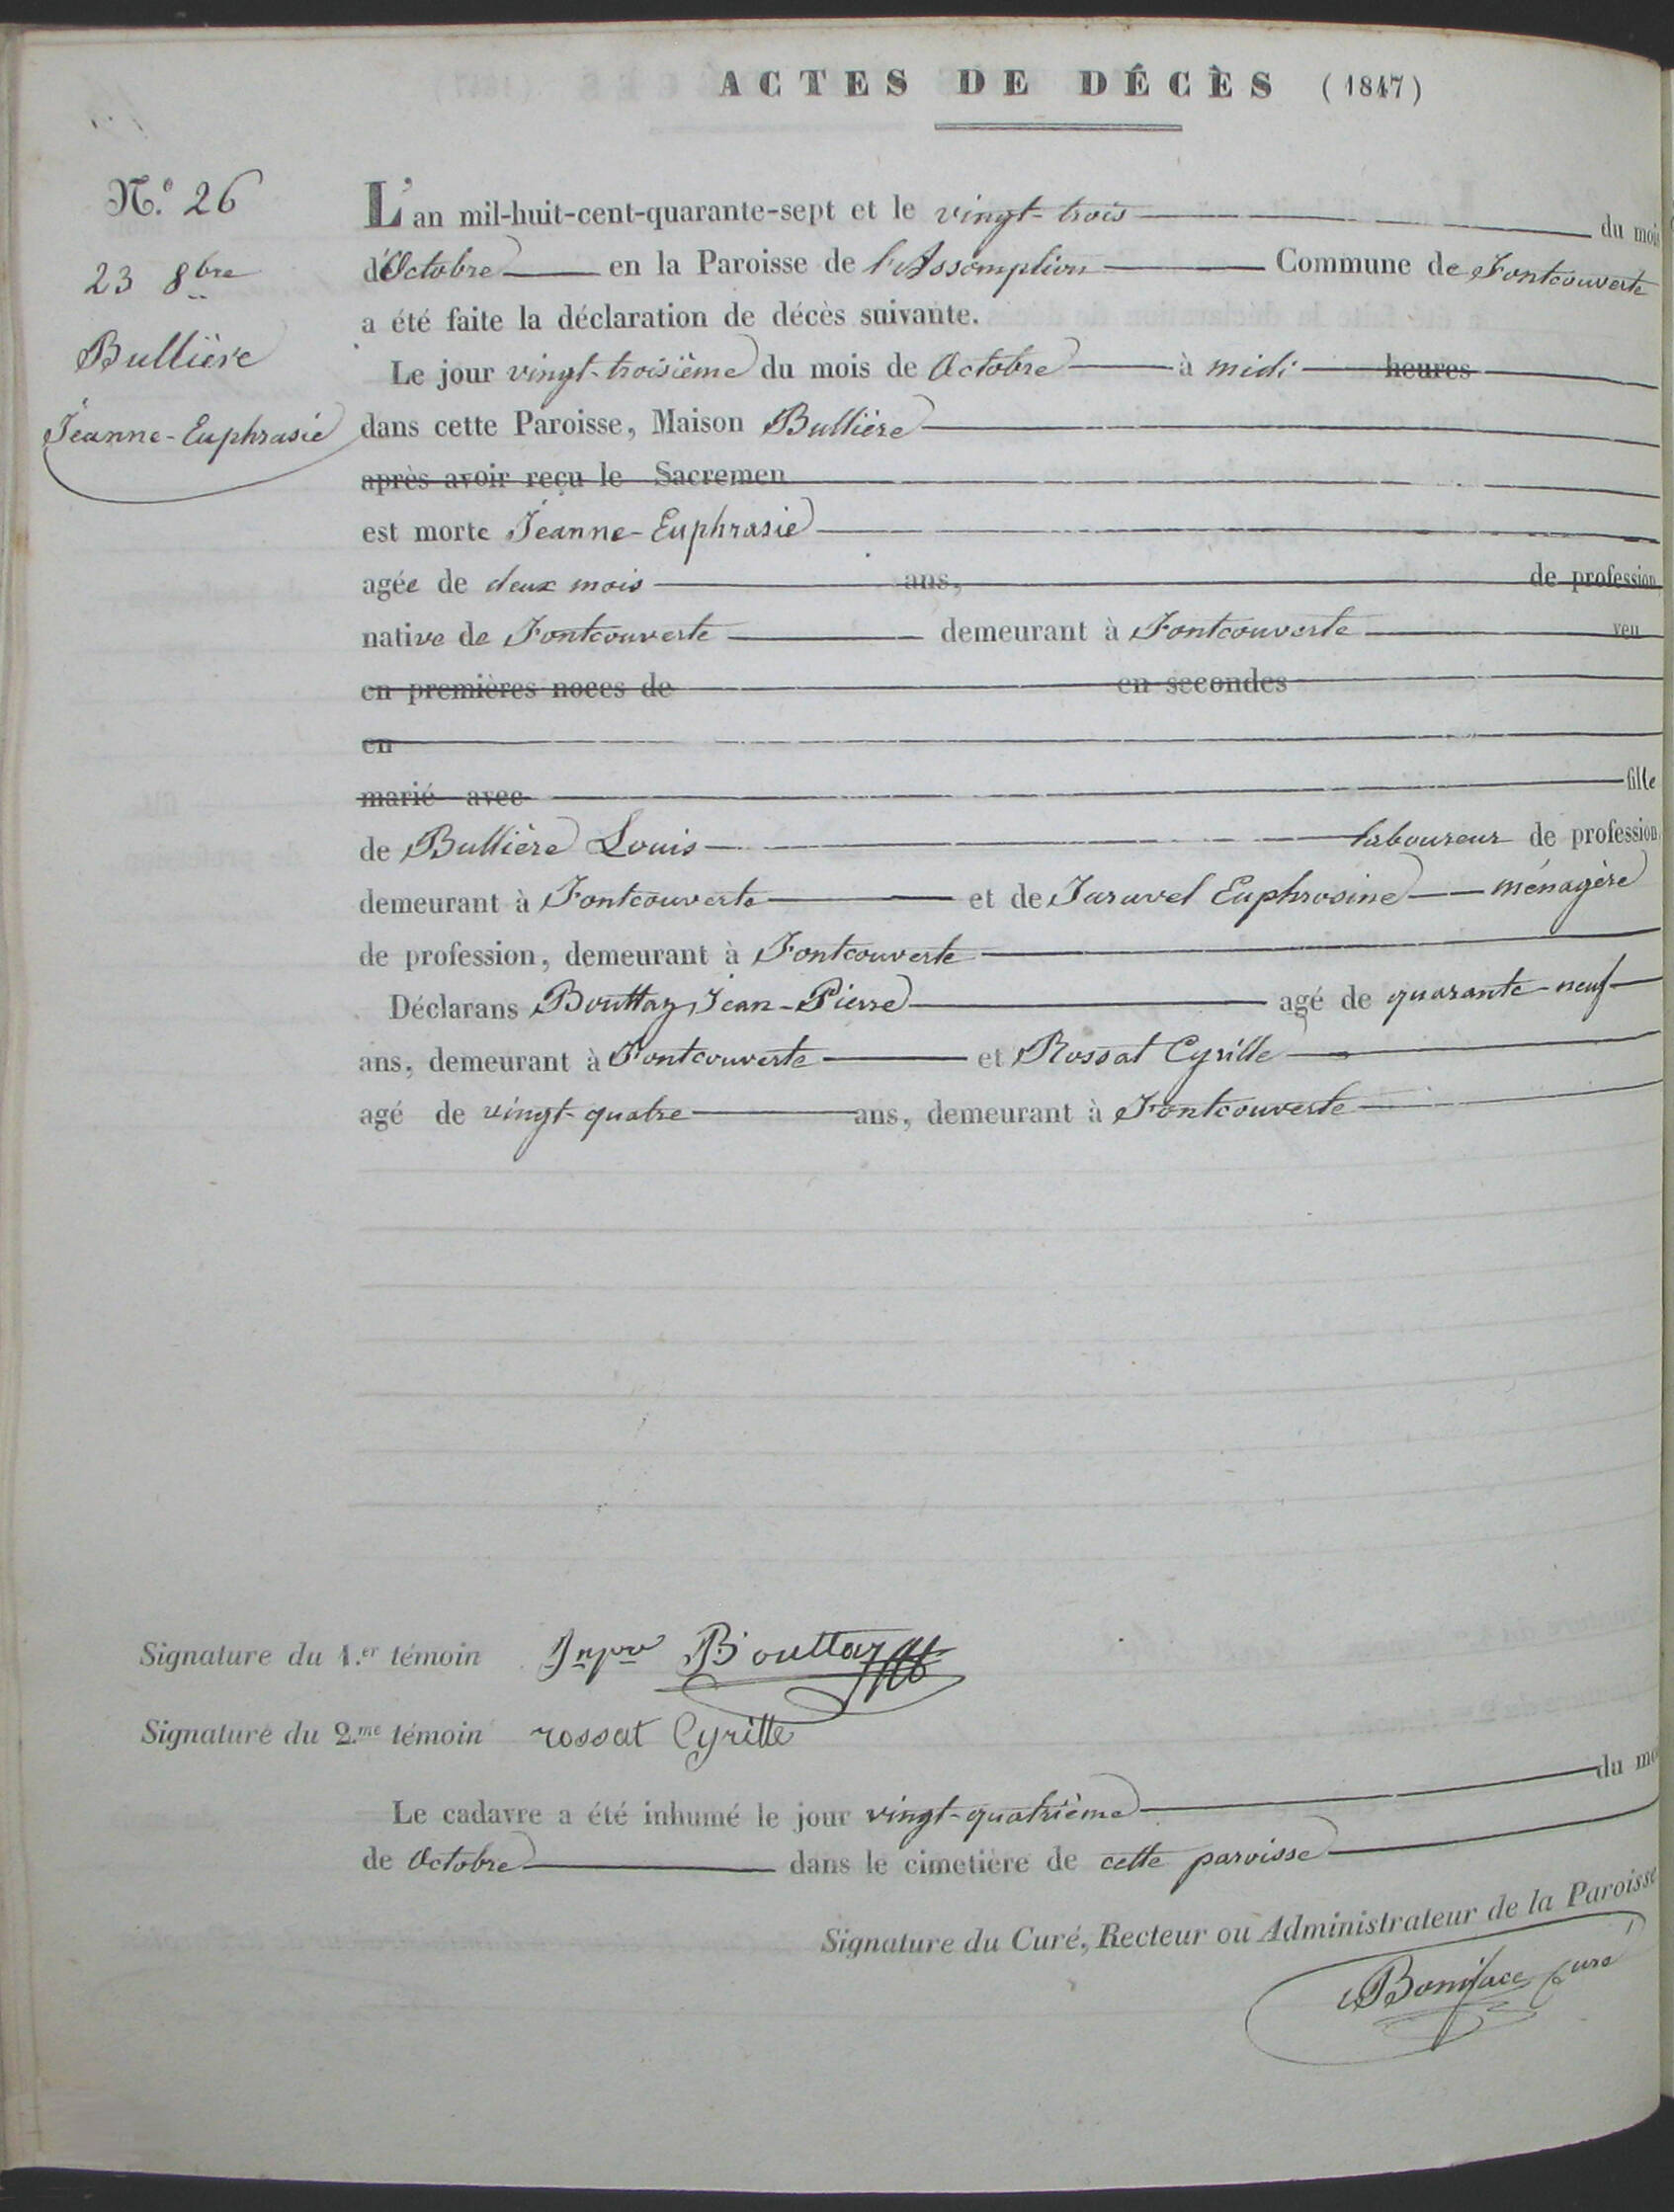 ACTES DE DÉCÈS (1847)
N.º 26
23 8bre
Bullière
Jeanne-Euphrasie
L'an mil-huit-cent-quarante-sept et le vingt-trois du mois
d'Octobre en la Paroisse de l'Assomption Commune de Fontcouverte
a été faite la déclaration de décès suivante.
Le jour vingt-troisième du mois de Octobre à midi heures
dans cette Paroisse, Maison Bullière
après avoir reçu le Sacremen
est morte Jeanne-Euphrasie
agée de deux mois ans, de profession
native de Fontcouverte demeurant à Fontcouverte veu
en premières noces de en secondes
en
marié avec fille
de Bullière Louis laboureur de profession
demeurant à Fontcouverte et de Jaruvel Euphrosine ménagère
de profession, demeurant à Fontcouverte
Déclarans Bouttaz Jean-Pierre agé de quarante-neuf
ans, demeurant à Fontcouverte et Rossat Cyrille
agé de vingt-quatre ans, demeurant à Fontcouverte
Signature du 1.er témoin Bouttaz
Signature du 2.me témoin rossat Cyrille
Le cadavre a été inhumé le jour vingt-quatrième du mo
de Octobre dans le cimetière de cette paroisse
Signature du Curé, Recteur ou Administrateur de la Paroisse
Boniface Curé